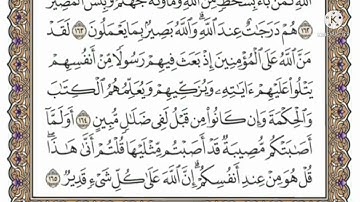 اللَّهِ كَمَن بَاءَ بِسَخَطٍ مِّنَ اللَّهِ وَمَأْوَىٰهُ جَهَنَّمُ وَبِئْسَ الْمَصِيرُ
١٦٢ هُمْ دَرَجَٰتٌ عِندَ اللَّهِ وَاللَّهُ بَصِيرٌ بِمَا يَعْمَلُونَ ١٦٣ لَقَدْ
مَنَّ اللَّهُ عَلَى الْمُؤْمِنِينَ إِذْ بَعَثَ فِيهِمْ رَسُولًا مِّنْ أَنفُسِهِمْ
يَتْلُوا۟ عَلَيْهِمْ ءَايَٰتِهِۦ وَيُزَكِّيهِمْ وَيُعَلِّمُهُمُ الْكِتَٰبَ
وَالْحِكْمَةَ وَإِن كَانُوا۟ مِن قَبْلُ لَفِى ضَلَٰلٍ مُّبِينٍ ١٦٤ أَوَلَمَّآ
أَصَٰبَتْكُم مُّصِيبَةٌ قَدْ أَصَبْتُم مِّثْلَيْهَا قُلْتُمْ أَنَّىٰ هَٰذَا
قُلْ هُوَ مِنْ عِندِ أَنفُسِكُمْ إِنَّ اللَّهَ عَلَىٰ كُلِّ شَىْءٍ قَدِيرٌ ١٦٥